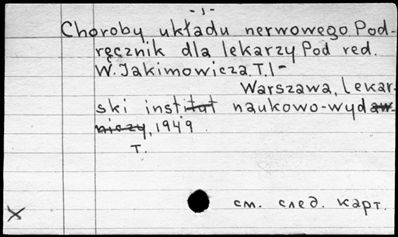 - 1 -
Choroby układu nerwowego Pod-
ręcznik dla lekarzy Pod red.
W. Jakimowicza. T. I -
Warszawa, Lekar-
ski instítut naukowo-wydaw-
niczy, 1949.
T.
см. след. карт.